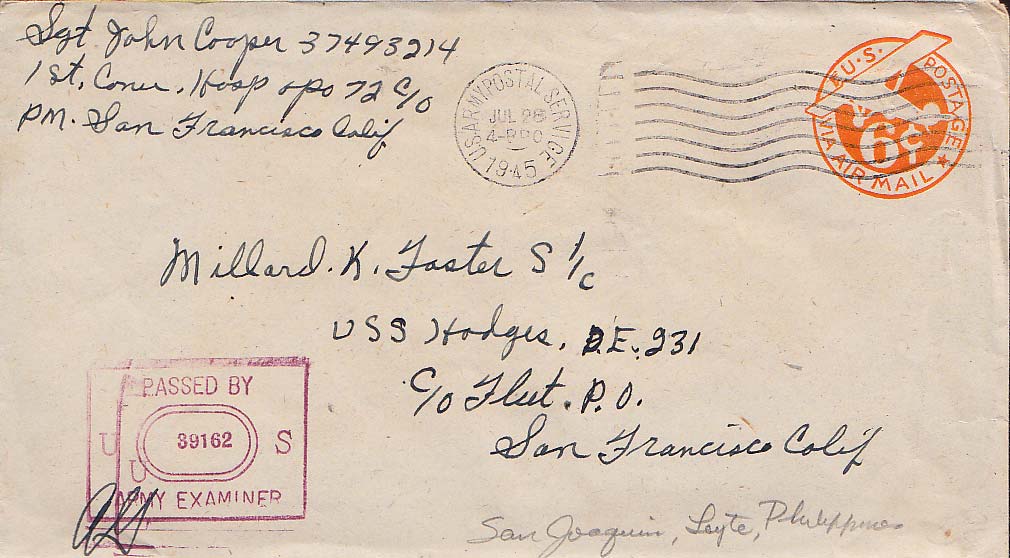 Sgt John Cooper 37493214
1st, Conv. Hosp apo 72 C/o
PM. San Francisco Calif
U.S. ARMY POSTAL SERVICE
JUL 28
1945
U.S. POSTAGE
VIA AIR MAIL
6¢
Millard. K. Foster S 1/c
USS Hodges, D.E. 231
C/o Fleet. P.O.
San Francisco Calif
PASSED BY
U 39162 S
U
ARMY EXAMINER
San Joaquin, Leyte, Philippines